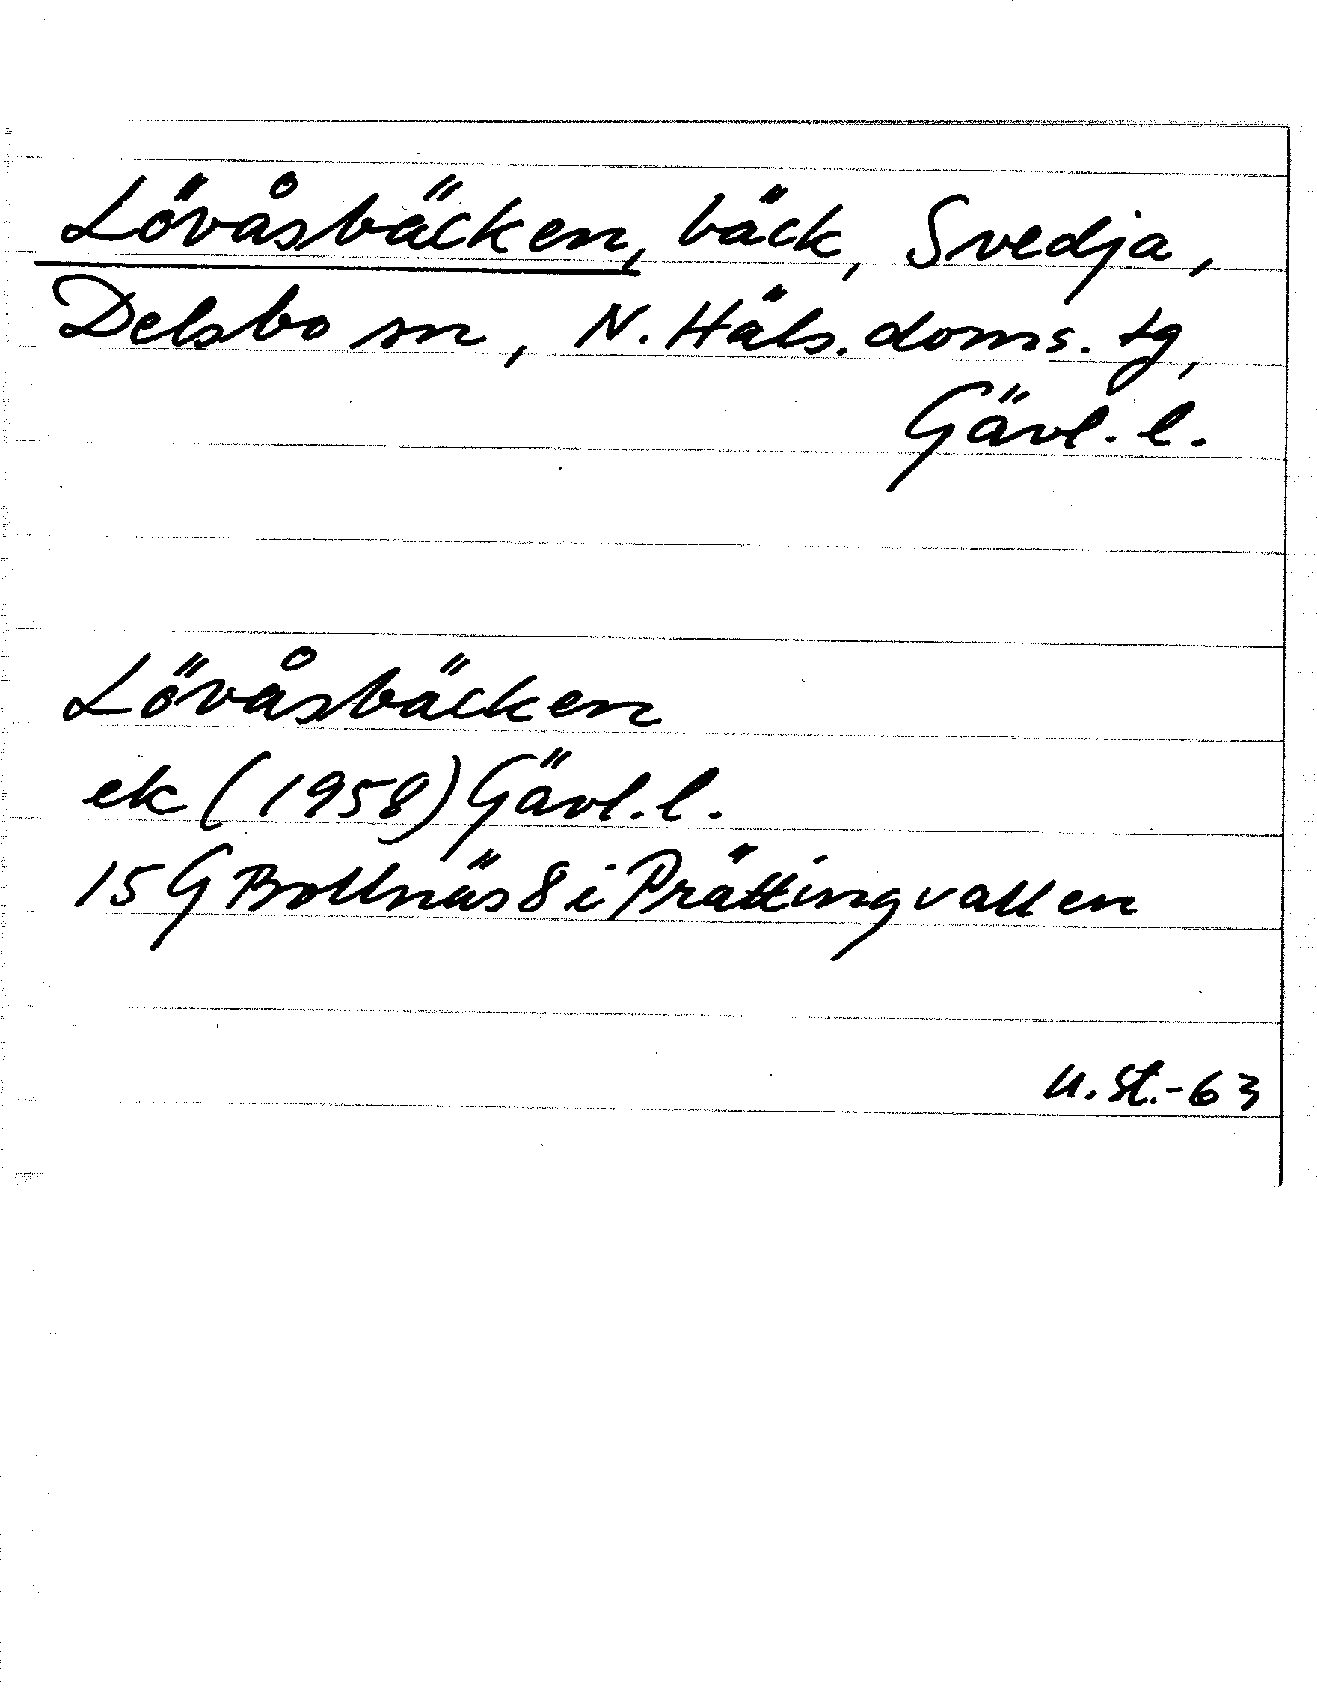 Lövåsbäcken, bäck, Svedja,
Delsbo sn, N. Häls. doms. tg,
Gävl. l.
Lövåsbäcken
ek (1958) Gävl. l.
15 G Bollnäs 8 i Prättingvallen
U. St. -63